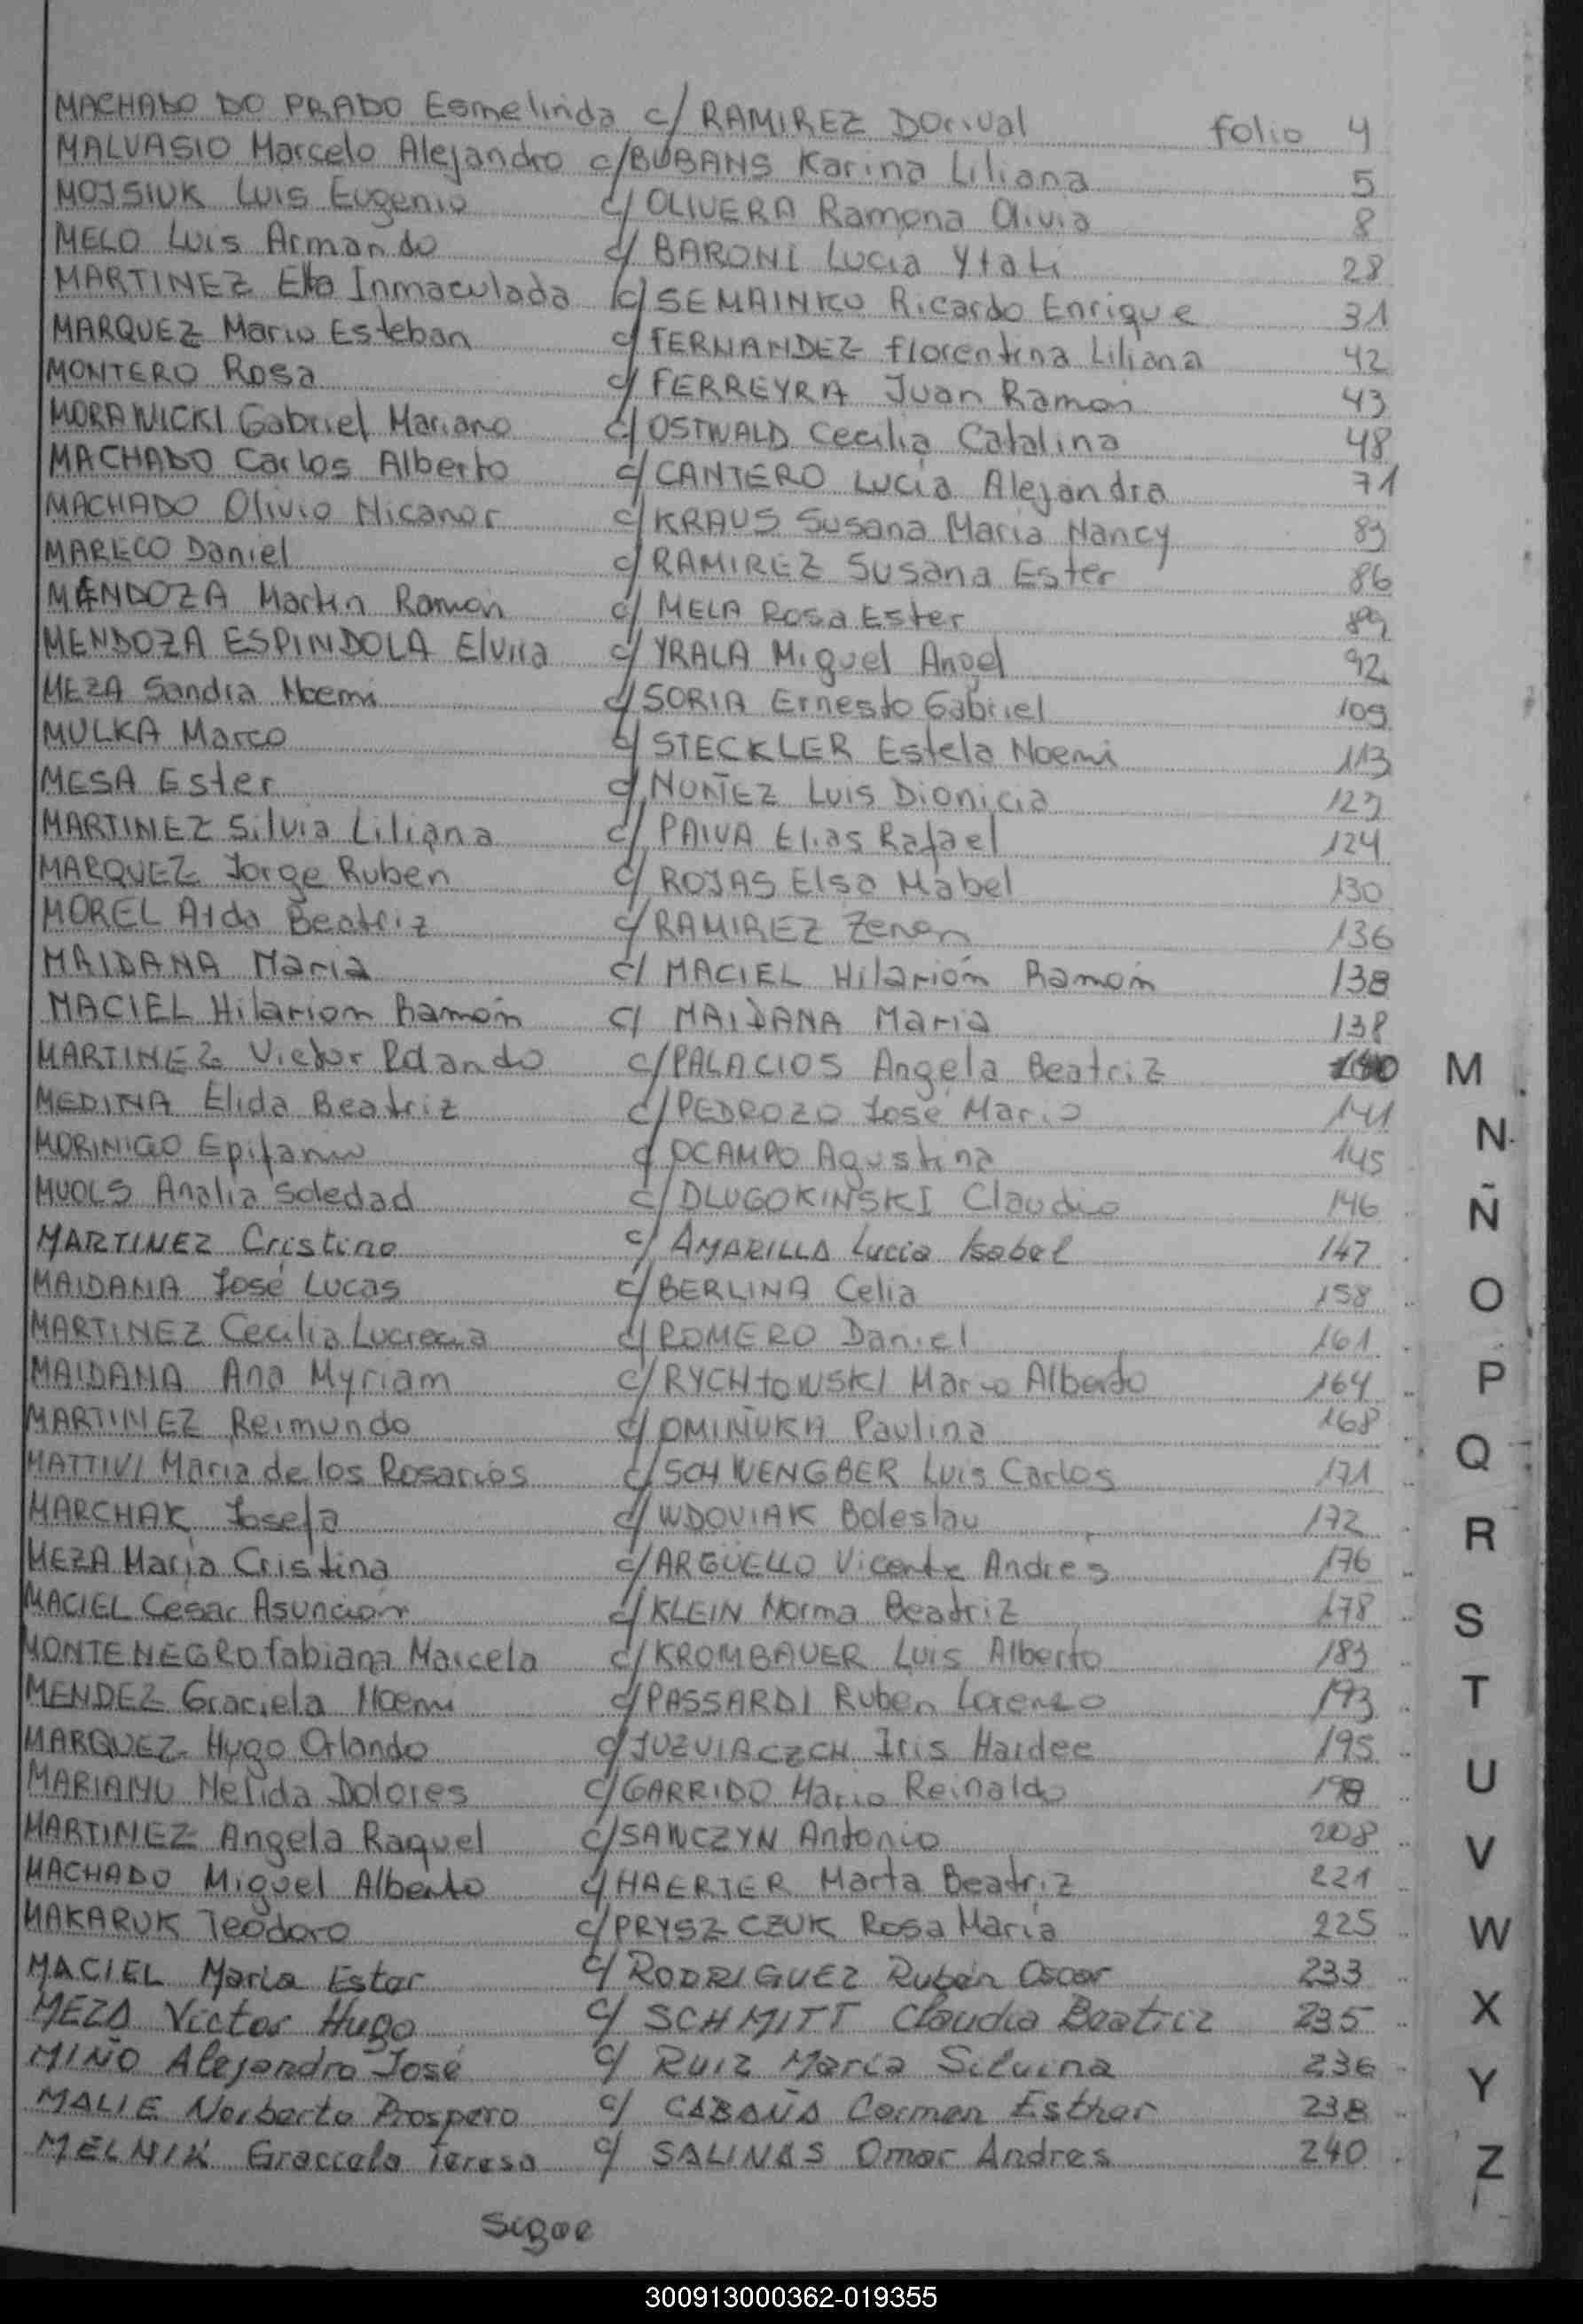 MACHADO DO PRADO Esmelinda c/ RAMIREZ Dorival folio 4
MALVASIO Marcelo Alejandro c/ BUBANS Karina Liliana 5
MOJSIUK Luis Eugenio c/ OLIVERA Ramona Olivia 8
MELO Luis Armando c/ BARONI Lucia Ytati 28
MARTINEZ Elba Inmaculada c/ SEMAINKO Ricardo Enrique 31
MARQUEZ Mario Esteban c/ FERNANDEZ Florentina Liliana 42
MONTERO Rosa c/ FERREYRA Juan Ramon 43
MORAWICKI Gabriel Mariano c/ OSTWALD Cecilia Catalina 48
MACHADO Carlos Alberto c/ CANTERO Lucia Alejandra 71
MACHADO Olivio Nicanor c/ KRAUS Susana Maria Nancy 83
MARECO Daniel c/ RAMIREZ Susana Ester 86
MENDOZA Martin Ramon c/ MELA Rosa Ester 89
MENDOZA ESPINDOLA Elvira c/ YRALA Miguel Angel 92
MEZA Sandra Noemi c/ SORIA Ernesto Gabriel 109
MULKA Marco c/ STECKLER Estela Noemi 113
MESA Ester c/ NUÑEZ Luis Dionicia 123
MARTINEZ Silvia Liliana c/ PAIVA Elias Rafael 124
MARQUEZ Jorge Ruben c/ ROJAS Elsa Mabel 130
MOREL Aida Beatriz c/ RAMIREZ Zenon 136
MAIDANA Maria c/ MACIEL Hilarión Ramón 138
MACIEL Hilarion Ramón c/ MAIDANA Maria 138
MARTINEZ Victor Rolando c/ PALACIOS Angela Beatriz 140
MEDINA Elida Beatriz c/ PEDROZO José Mario 141
MORINIGO Epifanio c/ OCAMPO Agustina 145
MUOLS Analia Soledad c/ DLUGOKINSKI Claudio 146
MARTINEZ Cristino c/ AMARILLA Lucia Isabel 147
MAIDANA José Lucas c/ BERLINA Celia 158
MARTINEZ Cecilia Lucrecia c/ ROMERO Daniel 161
MAIDANA Ana Myriam c/ RYCHtOWSKI Mario Alberto 164
MARTINEZ Reimundo c/ OMIÑUKA Paulina 168
MATTIVI Maria de los Rosarios c/ SCHWENGBER Luis Carlos 171
MARCHAK Josefa c/ WDOVIAK Boleslau 172
MEZA Maria Cristina c/ ARGÜELLO Vicente Andres 176
MACIEL Cesar Asunción c/ KLEIN Norma Beatriz 178
MONTENEGRO Fabiana Marcela c/ KROMBAUER Luis Alberto 183
MENDEZ Graciela Noemi c/ PASSARDI Ruben Lorenzo 193
MARQUEZ Hugo Orlando c/ JUZVIACZCH Iris Haidee 195
MARIANO Nelida Dolores c/ GARRIDO Mario Reinaldo 198
MARTINEZ Angela Raquel c/ SAWCZYN Antonio 208
MACHADO Miguel Alberto c/ HAERTER Marta Beatriz 221
MAKARUK Teodoro c/ PRYSZCZUK Rosa Maria 225
MACIEL Maria Ester c/ RODRIGUEZ Rubén Oscar 233
MEZA Victor Hugo c/ SCHMITT Claudia Beatriz 235
MIÑO Alejandro José c/ RUIZ Maria Silvina 236
MALIE Norberto Prospero c/ CABAÑA Carmen Esther 238
MELNIK Graciela Teresa c/ SALINAS Omar Andres 240
Sigue
M
N
Ñ
O
P
Q
R
S
T
U
V
W
X
Y
Z
300913000362-019355